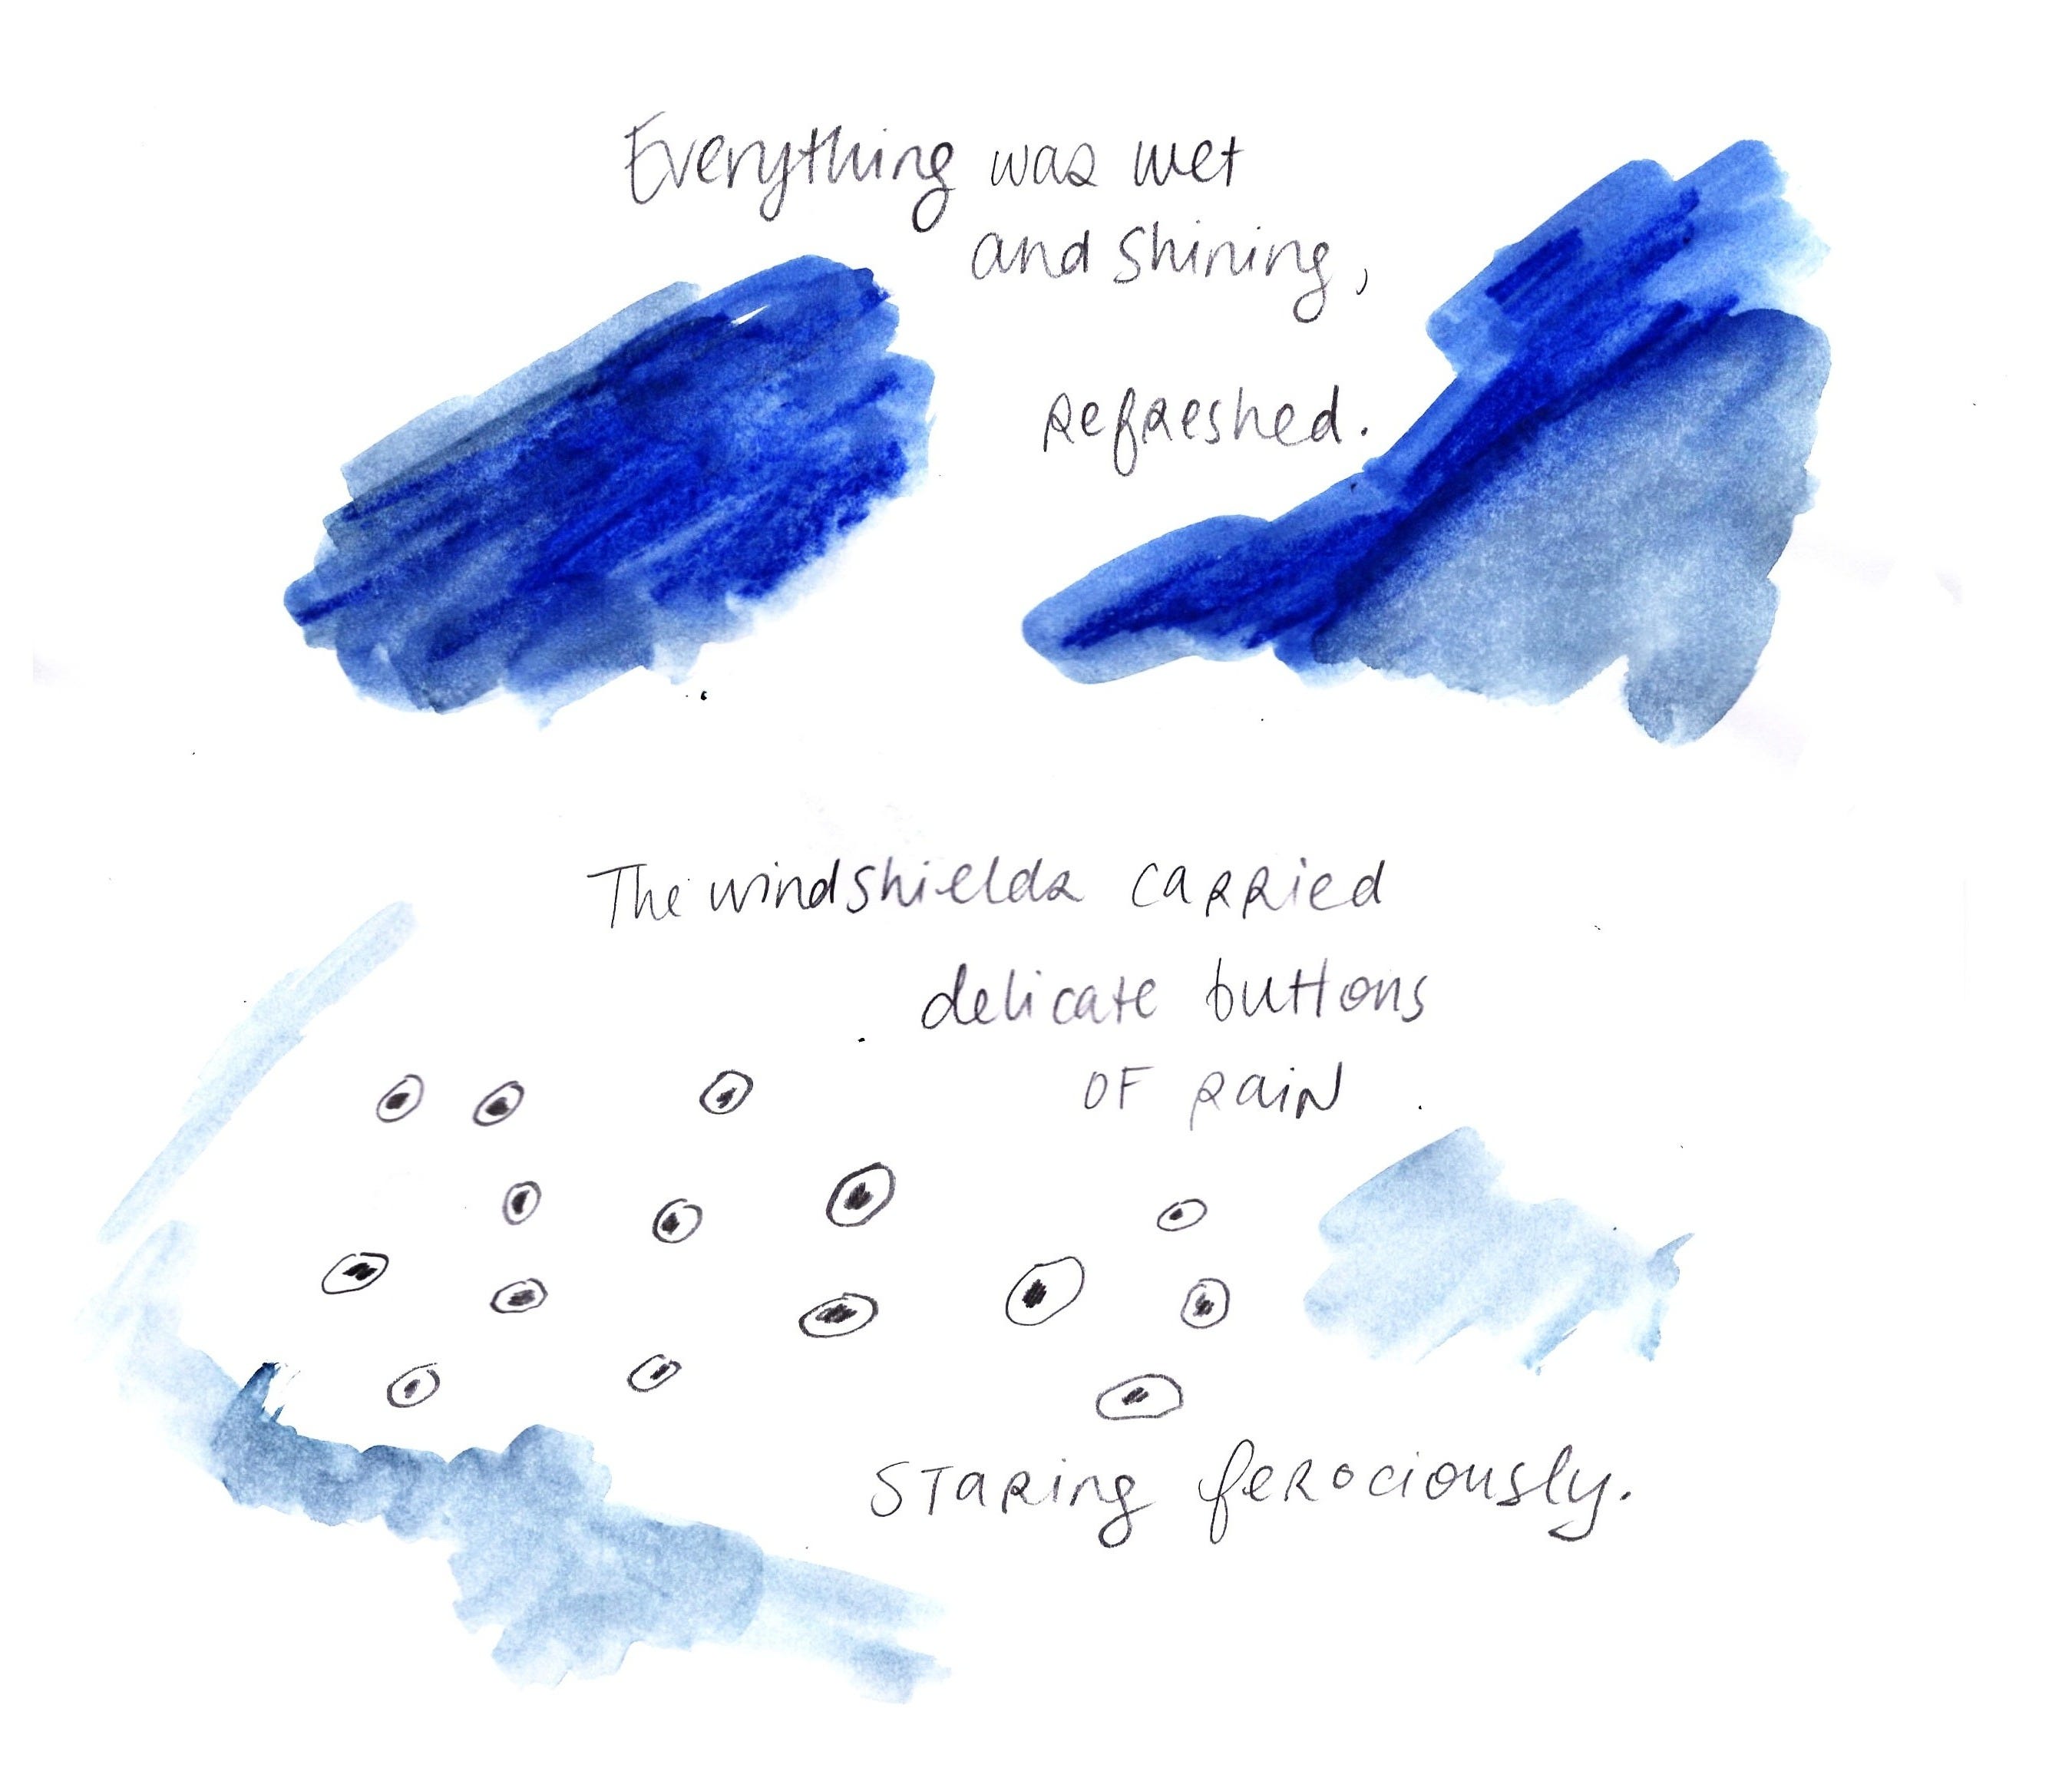 Everything was wet
and shining,
refreshed.
The windshields carried
delicate buttons
OF RaiN
STaRing feRociously.